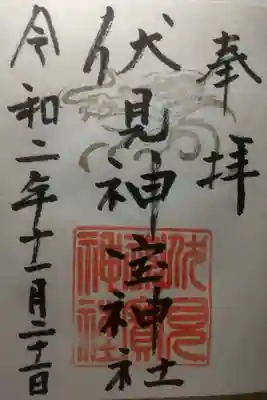 奉拝
伏見神宝神社
令和二年十一月二十二日
伏見
神寶
神社